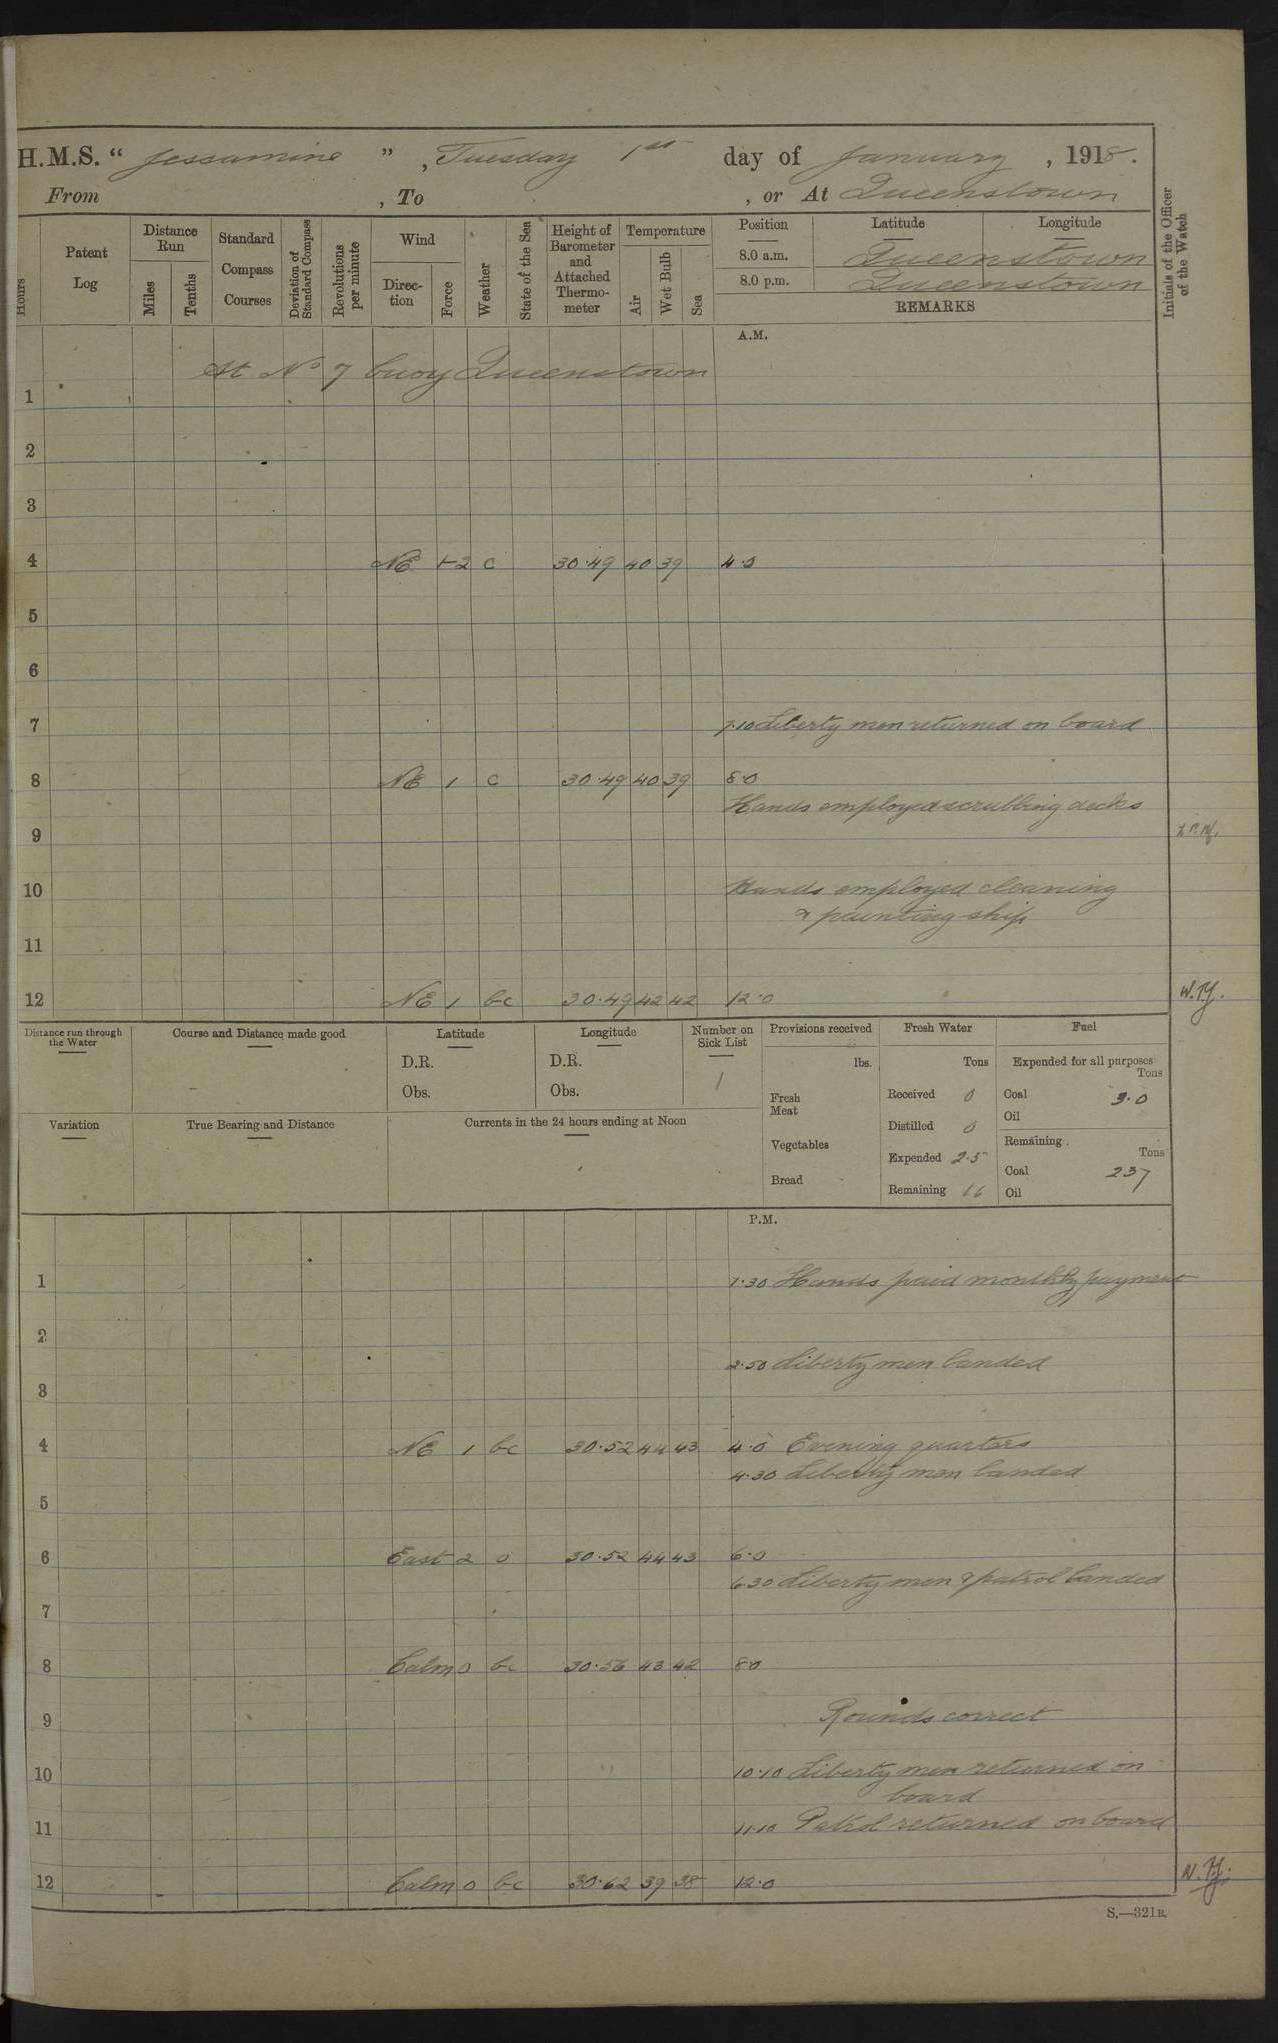 H.M.S. " Jessamine " , Tuesday 1st day of January , 1918.
From , To , or At Queenstown
Hours
Patent Log
Distance Run
Miles
Tenths
Standard Compass Courses
Deviation of Standard Compass
Revolutions per minute
Wind
Direction
Force
Weather
State of the Sea
Height of Barometer and Attached Thermometer
Temperature
Air
Wet Bulb
Sea
Position Latitude Longitude
8.0 a.m. Queenstown
8.0 p.m. Queenstown
REMARKS
Initials of the Officer of the Watch
A.M.
At No 7 buoy Queenstown
1
2
3
4 NE 1-2 c 30.49 40 39 4.0
5
6
7 7.10 Liberty men returned on board
8 NE 1 c 30.49 40 39 8.0
Hands employed scrubbing decks
9
10 Hands employed cleaning
& painting ship
11
12 NE 1 bc 30.49 42 42 12.0 W.Y.
Distance run through the Water
Course and Distance made good
Latitude
D.R.
Obs.
Longitude
D.R.
Obs.
Number on Sick List
1
Provisions received
lbs.
Fresh Meat
Vegetables
Bread
Fresh Water
Tons
Received 0
Distilled 0
Expended 2.5
Remaining 16
Fuel
Expended for all purposes
Tons
Coal 3.0
Oil
Remaining
Tons
Coal 237
Oil
Variation
True Bearing and Distance
Currents in the 24 hours ending at Noon
P.M.
1 1.30 Hands paid monthly payment
2
2.50 Liberty men landed
3
4 NE 1 bc 30.52 44 43 4.0 Evening quarters
4.30 Liberty men landed
5
6 East 2 o 30.52 44 43 6.0
6.30 Liberty men & patrol landed
7
8 Calm 0 bc 30.56 43 42 8.0
9 Rounds correct
10 10.10 Liberty men returned on
board
11 11.10 Patrol returned on board
12 Calm 0 bc 30.62 39 38 12.0
S.—321E.